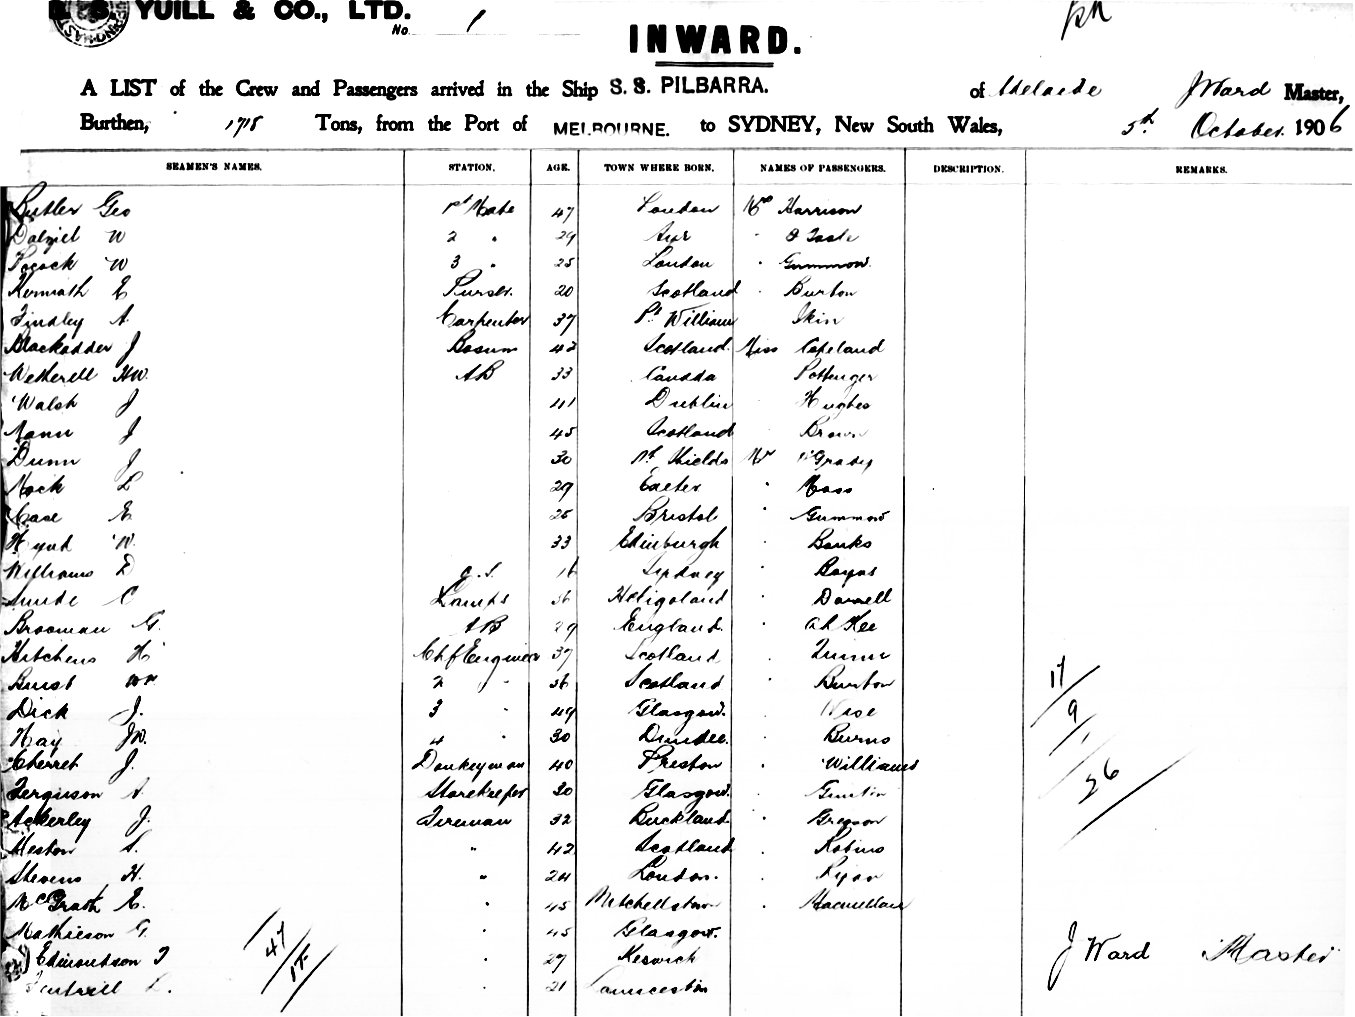 YUILL & CO., LTD.
No. 1
INWARD.
A LIST of the Crew and Passengers arrived in the Ship S. S. PILBARRA. of Adelaide J Ward Master,
Burthen, 1718 Tons, from the Port of MELBOURNE. to SYDNEY, New South Wales, 5th October 1906
SEAMEN'S NAMES. STATION. AGE. TOWN WHERE BORN. NAMES OF PASSENGERS. DESCRIPTION. REMARKS.
Butler Geo 1st Mate 47 London Mrs Harrison
Dalziel W 2 " 29 Ayr "
Pocock W 3 " 25 London " Gummow
E Purser 20 Scotland " Burton
Findley A. Carpenter 37 Pt William Skin
Blackadder J Bosun 42 Scotland Miss Copeland
Wetherell HW. AB 33 Canada Pottinger
Walsh J 41 Dublin Hughes
Mann J 45 Scotland Brown
Dunn J 30 Nt Shields Mr O'Grady
Mock L 29 Exeter " Moss
Case E 25 Bristol " Gummow
W. 33 Edinburgh " Banks
Williams D O.S. 16 Sydney "
C Lamps 36 Heligoland " Darrell
Brooman G. AB 29 England " Ah Kee
Hitchens H Chf Engineer 37 Scotland " Quinn
Wm 2 " 36 Scotland " Burton
Dick J. 3 " 49 Glasgow. " Wise
Hay JW. 4 " 30 Dundee. " Burns
Cherret J. Donkeyman 40 Preston " Williams
Ferguson A. Storekeeper 30 Glasgow. "
Ackerley J. Fireman 32 Buckland " Gregson
Weston S. " 42 Scotland " Robins
Stevens H. " 24 London. " Ryan
McGrath E. " 45 Mitchellstown " Macmillan
Mathieson G. " 45 Glasgow.
Edmondson J " 27 Keswick
L. " 21 Launceston
47
17
9
26
J Ward Master